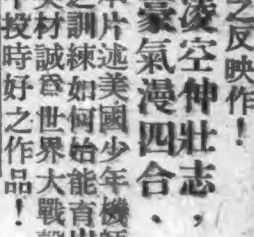 之反映作！
凌空伸壯志，
豪氣漫四合．
片述美國少年機師
之訓練如何始能育出
材誠爲世界大戰
投時好之作品！